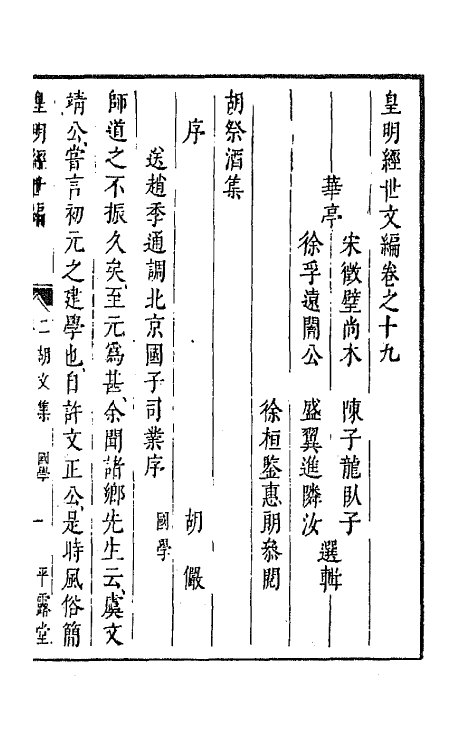 皇明經世文編卷之十九
華亭
宋徵璧尚木 陳子龍臥子
徐孚遠闇公 盛翼進隣汝
選輯
徐桓鑒惠朗叅閱
胡祭酒集 胡儼
序
送趙季通調北京國子司業序 國學
師道之不振久矣至元爲甚余聞諸鄉先生云虞文
靖公嘗言初元之建學也自許文正公是時風俗簡
皇明經世編 二胡文集 國學 一 平露堂